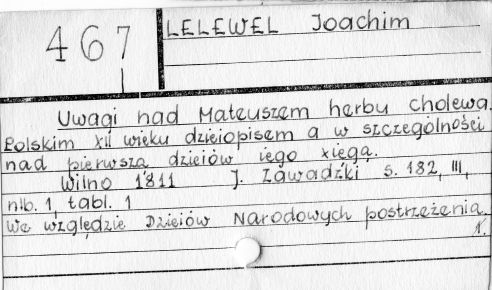 467
LELEWEL Joachim
Uwagi nad Mateuszem herbu Cholewa.
Polskim XII wieku dzieiopisem a w szczególności
nad pierwszą dzieiów iego xięgą.
Wilno 1811 J. Zawadzki, s. 182, III,
nlb. 1, tabl. 1
We względzie Dzieiów Narodowych postrzeżenia.
1.